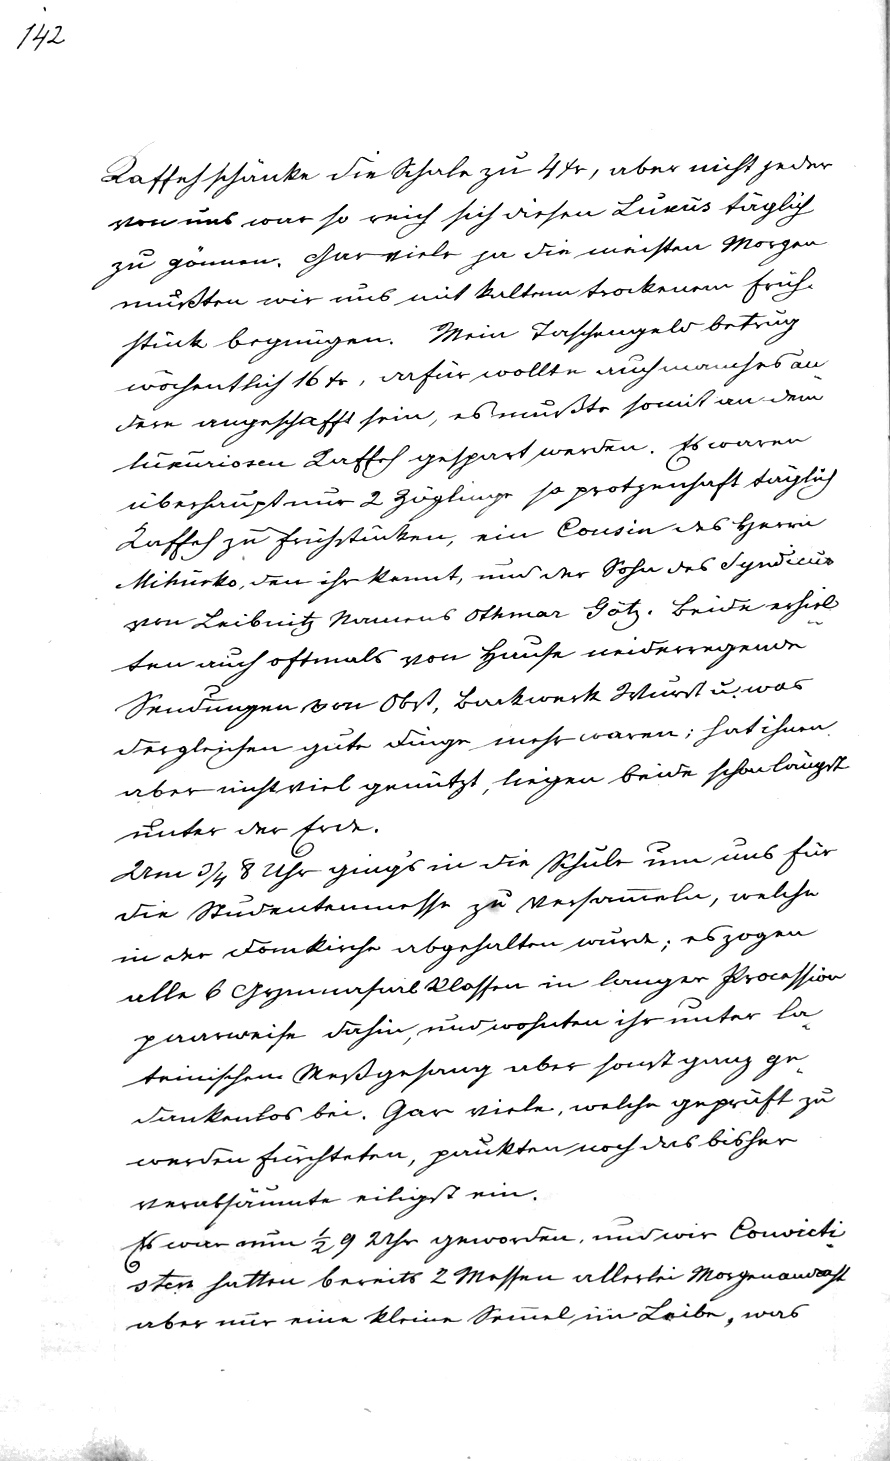 142
Kaffehschänke die Schale zu 4 kr, aber nicht jeder
von uns war so reich sich diesen Luxus täglich
zu gönnen. Gar viele ja die meisten Morgen
mußten wir uns mit kaltem trockenem Früh-
stück begnügen. Mein Taschengeld betrug
wöchentlich 16 kr, dafür wollte auch manches an
dere angeschafft sein, es mußte somit an dem
luxuriosen Kaffeh gespart werden. Es waren
überhaupt nur 2 Zöglinge so protzenhaft täglich
Kaffeh zu frühstücken, ein Cousin des Herrn
Mihurko, den ihr kennt, und der Sohn des Syndicus
von Leibnitz Namens Othmar Götz. Beide erhiel-
ten auch oftmals von Hause neiderregende
Sendungen von Obst, Backwerk Wurst u. was
dergleichen gute Dinge mehr waren; hat ihnen
aber nicht viel genützt, liegen beide schon längst
unter der Erde.
Um 3/4 8 Uhr ging's in die Schule um uns für
die Studentenmesse zu versam̅eln, welche
in der Domkirche abgehalten wurde; es zogen
alle 6 Gymnasial Klassen in langer Procession
paarweise dahin, und wohnten ihr unter la-
teinischem Meßgesang aber sonst ganz ge-
dankenlos bei. Gar viele, welche geprüft zu
werden fürchteten, paukten noch das bisher
verabsäumte eiligst ein.
Es war nun ½ 9 Uhr geworden, und wir Convicti-
sten hatten bereits 2 Messen allerlei Morgenandacht
aber nur eine kleine Sem̅el im Leibe, was